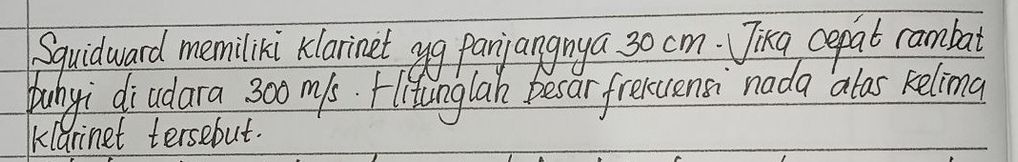 Squidward memiliki klarinet yg panjangnya 30 cm. Jika cepat rambat
bunyi di udara 300 m/s. Hitunglah besar frekuensi nada atas kelima
klarinet tersebut.